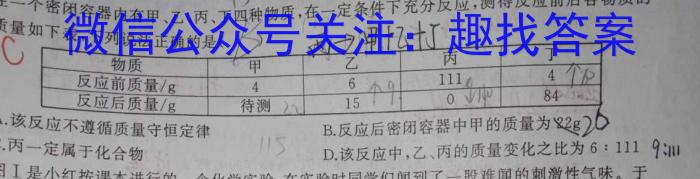 在一个密闭容器内有甲、乙、丙、丁四种物质,在一定条件下充分反应,测得反应前后各物质的
质量如下表
微信公众号关注:趣找答案
物质 甲 乙 丙
反应前质量/g 4 6 111 4
反应后质量/g 待测 15 0 84
A.该反应不遵循质量守恒定律 B.反应后密闭容器中甲的质量为22g
C.丙一定属于化合物 D.该反应中,乙、丙的质量变化之比为6:111 9:111
图I是小红按课本进行的一个化学实验,在实验时同学们闻到了一股难闻的刺激性气味。于